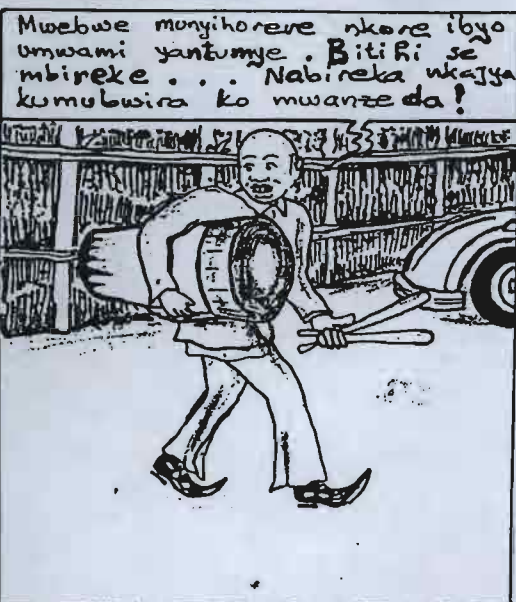 Mwebwe munyihorere nkore ibyo
umwami yantumye. Bitihi se
mbireke . . . Nabireka nkajya
kumubwira ko mwanze da!